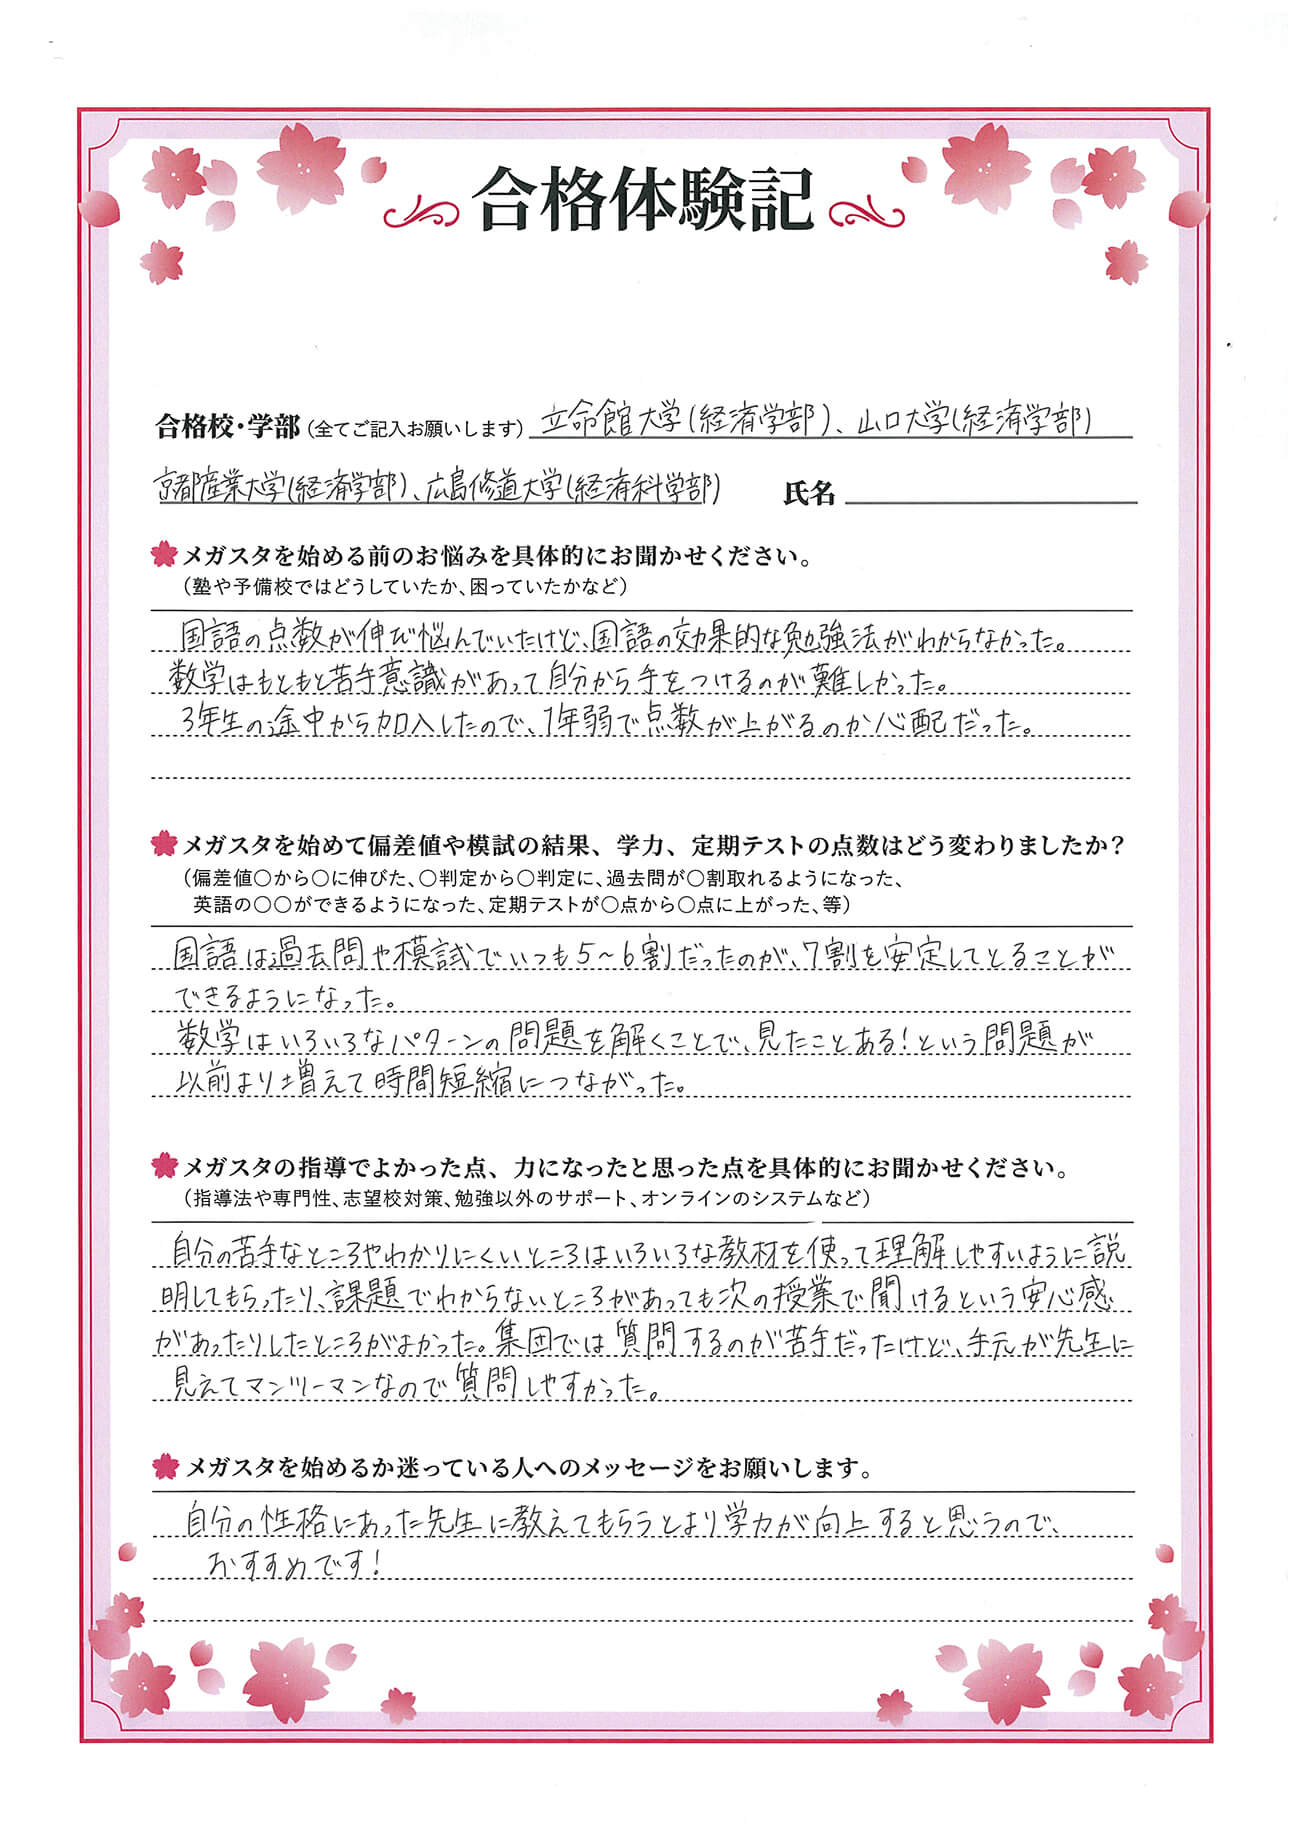 合格体験記
合格校・学部(全てご記入お願いします) 立命館大学(経済学部)、山口大学(経済学部)
京都産業大学(経済学部)、広島修道大学(経済科学部) 氏名
メガスタを始める前のお悩みを具体的にお聞かせください。
(塾や予備校ではどうしていたか、困っていたかなど)
国語の点数が伸び悩んでいたけど、国語の効果的な勉強法がわからなかった。
数学はもともと苦手意識があって自分から手をつけるのが難しかった。
3年生の途中から加入したので、1年弱で点数が上がるのか心配だった。
メガスタを始めて偏差値や模試の結果、学力、定期テストの点数はどう変わりましたか?
(偏差値○から○に伸びた、○判定から○判定に、過去問が○割取れるようになった、
英語の○○ができるようになった、定期テストが○点から○点に上がった、等)
国語は過去問や模試でいつも5~6割だったのが、7割を安定してとることが
できるようになった。
数学はいろいろなパターンの問題を解くことで、見たことある!という問題が
以前より増えて時間短縮につながった。
メガスタの指導でよかった点、力になったと思った点を具体的にお聞かせください。
(指導法や専門性、志望校対策、勉強以外のサポート、オンラインのシステムなど)
自分の苦手なところやわかりにくいところはいろいろな教材を使って理解しやすいように説
明してもらったり、課題でわからないところがあっても次の授業で聞けるという安心感
があったりしたところがよかった。集団では質問するのが苦手だったけど、手元が先生に
見えてマンツーマンなので質問しやすかった。
メガスタを始めるか迷っている人へのメッセージをお願いします。
自分の性格にあった先生に教えてもらうとより学力が向上すると思うので、
おすすめです!